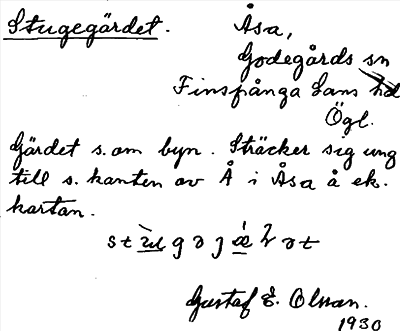 Stugegärdet.
Åsa,
Godegårds sn
Finspånga läns hd
Ögl.
Gärdet s. om byn. Sträcker sig ung
till s. kanten av Å i Åsa å ek.
kartan.
Gustaf E. Olsson.
1930